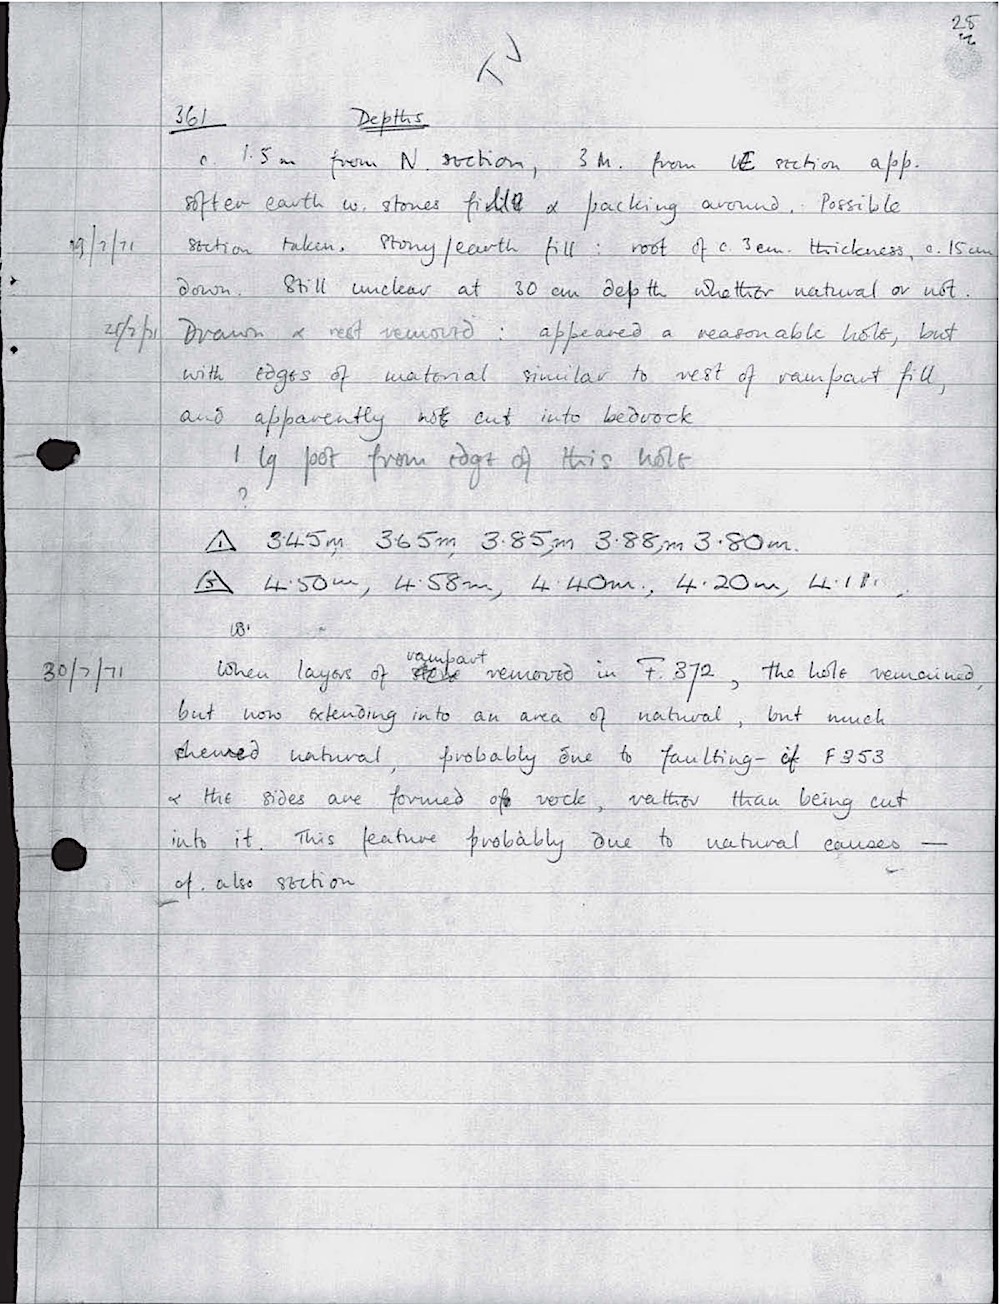 28
TJ
361 Depths
c. 1.5m from N. section, 3M. from E section app.
softer earth w. stones fill & packing around. Possible
19/7/71 section taken. Stony/earth fill : root of c. 3cm. thickness, c. 15cm
down. Still unclear at 30 cm depth whether natural or not.
Drawn & rest removed : appeared a reasonable hole, but
with edges of material similar to rest of rampart fill,
and apparently not cut into bedrock
1 lg pot from edge of this hole
?
1 3.45m, 3.65m, 3.85,m 3.88,m 3.80m.
4.50m, 4.58m, 4.40m., 4.20m, 4.18
30/7/71 When layers of rampart removed in F.372, the hole remained,
but now extending into an area of natural, but much
natural, probably due to faulting - cf F353
& the sides are formed of rock, rather than being cut
into it. This feature probably due to natural causes —
cf. also section